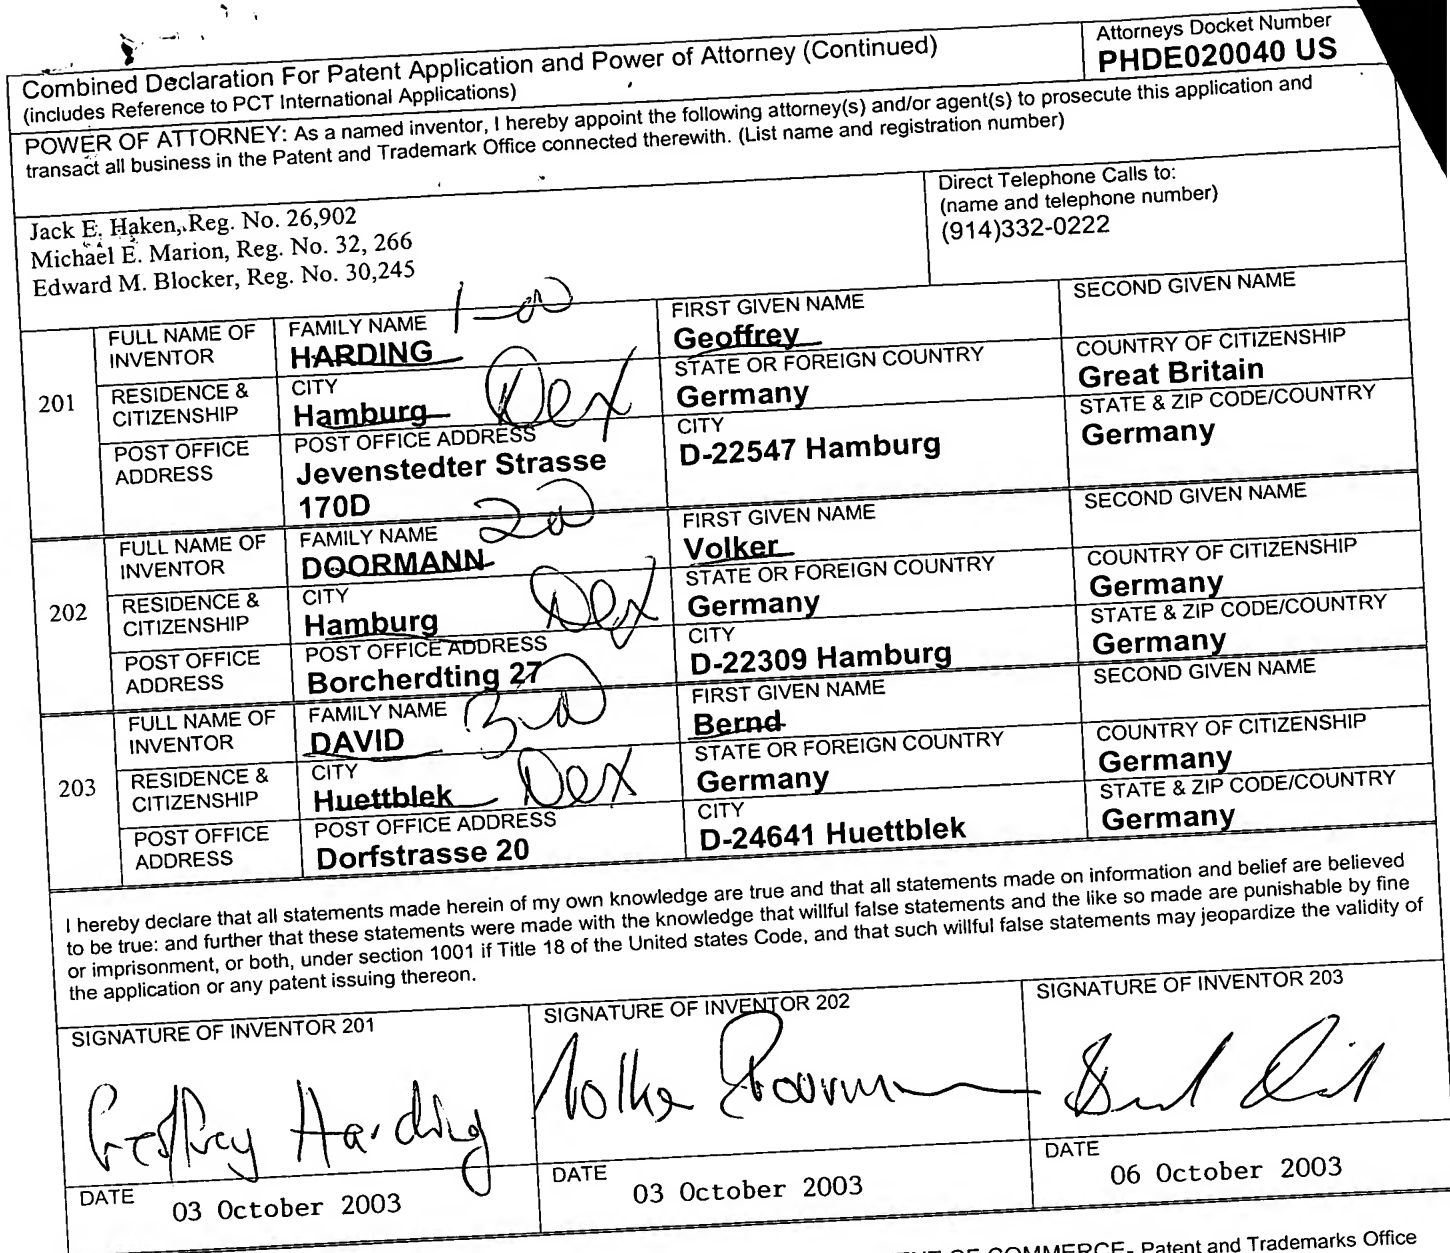 Combined Declaration For Patent Application and Power of Attorney (Continued)
(includes Reference to PCT International Applications)
Attorneys Docket Number
PHDE020040 US
POWER OF ATTORNEY: As a named inventor, I hereby appoint the following attorney(s) and/or agent(s) to prosecute this application and
transact all business in the Patent and Trademark Office connected therewith. (List name and registration number)
Jack E. Haken, Reg. No. 26,902
Michael E. Marion, Reg. No. 32, 266
Edward M. Blocker, Reg. No. 30,245
Direct Telephone Calls to:
(name and telephone number)
(914)332-0222
201
FULL NAME OF
INVENTOR
FAMILY NAME
HARDING
1-00
FIRST GIVEN NAME
Geoffrey
SECOND GIVEN NAME
RESIDENCE &
CITIZENSHIP
CITY
Hamburg
DEX
STATE OR FOREIGN COUNTRY
Germany
COUNTRY OF CITIZENSHIP
Great Britain
POST OFFICE
ADDRESS
POST OFFICE ADDRESS
Jevenstedter Strasse
170D
CITY
D-22547 Hamburg
STATE & ZIP CODE/COUNTRY
Germany
202
FULL NAME OF
INVENTOR
FAMILY NAME
DOORMANN
200
FIRST GIVEN NAME
Volker
SECOND GIVEN NAME
RESIDENCE &
CITIZENSHIP
CITY
Hamburg
DEX
STATE OR FOREIGN COUNTRY
Germany
COUNTRY OF CITIZENSHIP
Germany
POST OFFICE
ADDRESS
POST OFFICE ADDRESS
Borcherdting 27
CITY
D-22309 Hamburg
STATE & ZIP CODE/COUNTRY
Germany
203
FULL NAME OF
INVENTOR
FAMILY NAME
DAVID
300
FIRST GIVEN NAME
Bernd
SECOND GIVEN NAME
RESIDENCE &
CITIZENSHIP
CITY
Huettblek
DEX
STATE OR FOREIGN COUNTRY
Germany
COUNTRY OF CITIZENSHIP
Germany
POST OFFICE
ADDRESS
POST OFFICE ADDRESS
Dorfstrasse 20
CITY
D-24641 Huettblek
STATE & ZIP CODE/COUNTRY
Germany
I hereby declare that all statements made herein of my own knowledge are true and that all statements made on information and belief are believed
to be true: and further that these statements were made with the knowledge that willful false statements and the like so made are punishable by fine
or imprisonment, or both, under section 1001 if Title 18 of the United states Code, and that such willful false statements may jeopardize the validity of
the application or any patent issuing thereon.
SIGNATURE OF INVENTOR 201
Geoffrey Harding
SIGNATURE OF INVENTOR 202
Volker Doormann
SIGNATURE OF INVENTOR 203
DATE
03 October 2003
DATE
03 October 2003
DATE
06 October 2003
COMMERCE- Patent and Trademarks Office